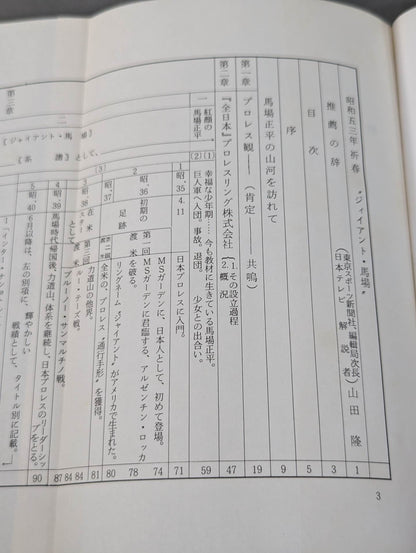 昭和五三年 祈春 〝ジャイアント・馬場〟 1
推薦の辞 (東京スポーツ新聞社、編輯局次長 日本テレビ 解説者) 山田 隆 3
目次 5
序 9
馬場正平の山河を訪れて 19
第一章 プロレス観──(肯定 共鳴)
第二章 『全日本』プロレスリング株式会社 (1.その設立過程 2.概況 47
一 紅顔の馬場正平
(1) 幸福な少年期…今も教材に生きている馬場正平。 59
(2) 巨人軍へ入団。事故。退団。 少女との出合い。
1 昭、35 4.11 日本プロレスに入門。 71
2 昭、36 初期の足跡 第一回 渡米を破る。
MSガーデンに、日本人として、初めて登場。 74
MSガーデンに君臨する、アルゼンチン・ロッカ 78
昭、37 第二戦 リングネーム「ジャイアント」がアメリカで生まれた。 80
全米の、プロレス〝通行手形〟を獲得。 81
(3) 昭、38 在米 第三回 渡米 力道山の他界。 84
スターとして ルー・テーズ戦。 84
ブルーノー・サンマルチノ戦。 87
4 昭、39 馬場時代 帰国後、力道山、体系を継続し、日本プロレスのリーダーシップをとる。 90
5 昭、40 6月以降は、左の別項に、輝やかしい
戦積として、タイトル別に記載。
第三章
二 《ジャイアント・馬場》
《系譜》として、
3